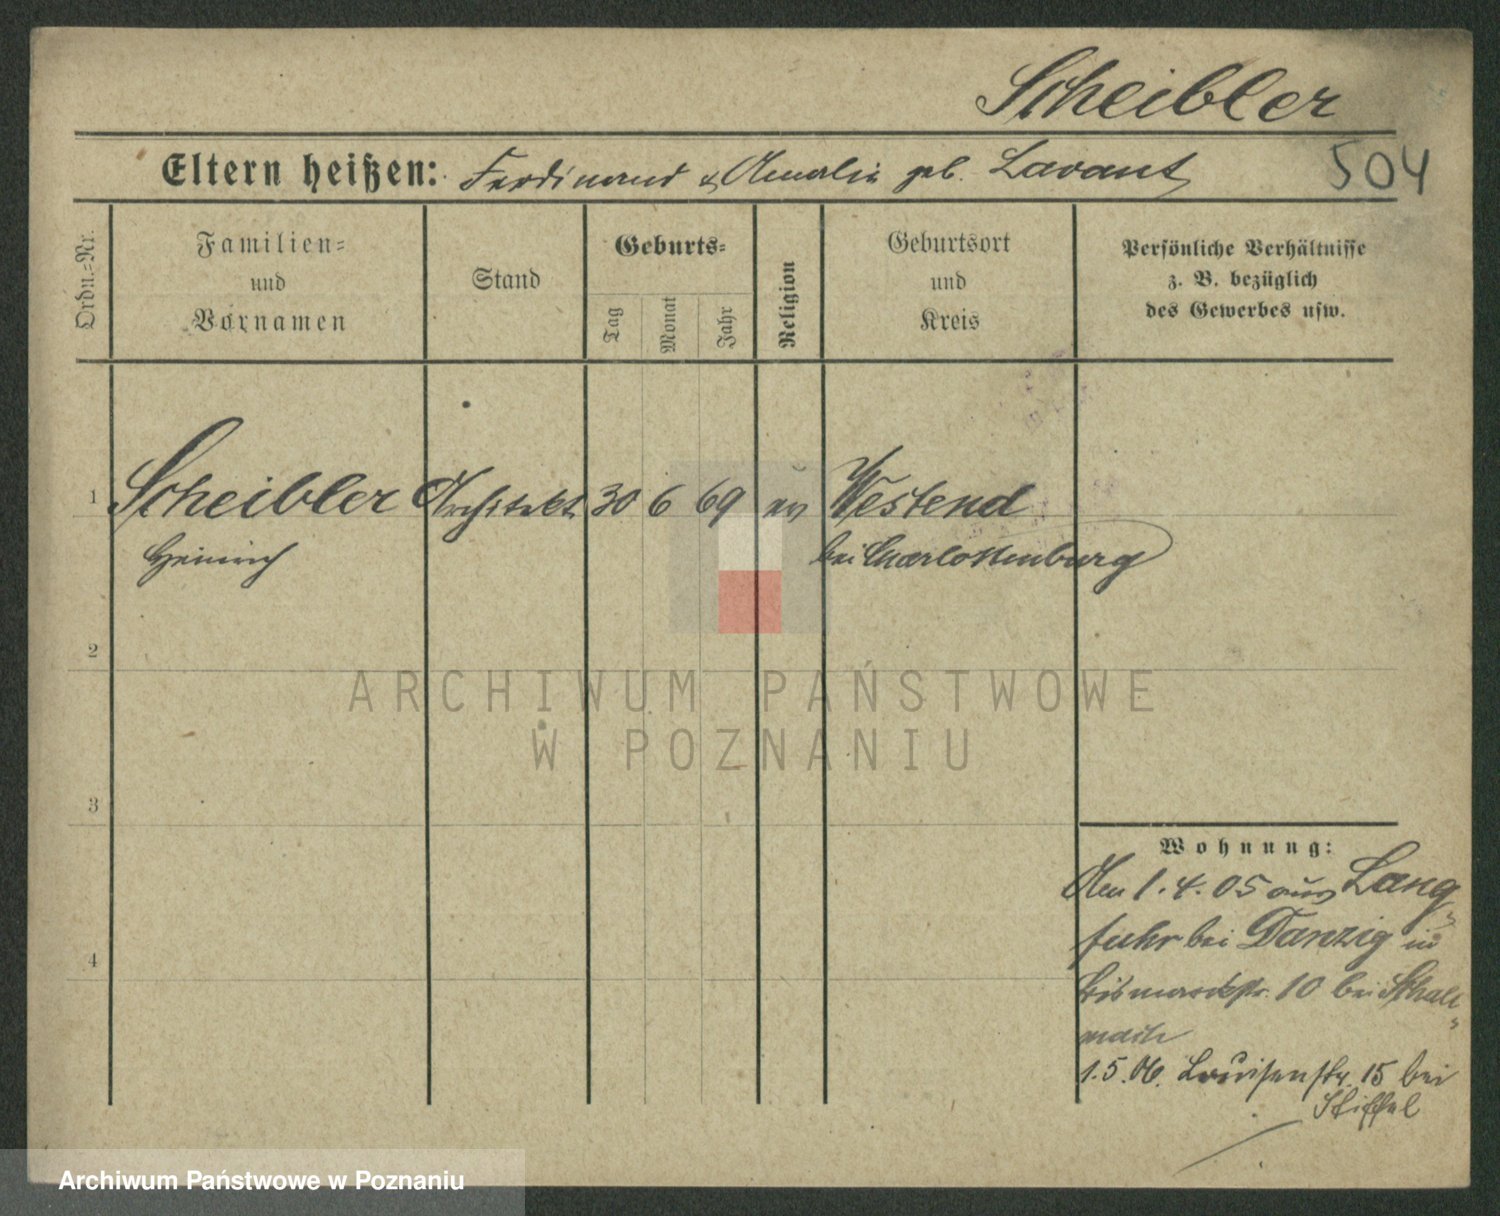 Scheibler
Eltern heißen: Ferdinand & Amalie geb. Lavant
504
Ordn.=Nr.
Familien=
und
Vornamen
Stand
Geburts=
Tag
Monat
Jahr
Religion
Geburtsort
und
Kreis
Persönliche Verhältnisse
z. B. bezüglich
des Gewerbes usw.
1 Scheibler Architekt 30 6 69 ev Westend
Heinrich bei Charlottenburg
2
ARCHIWUM PAŃSTWOWE
W POZNANIU
3
Wohnung:
Am 1.4.05 aus Lang
fuhr bei Danzig in
4
Bismarckstr. 10 bei Schall
mach
1.5.06. Louisenstr. 15 bei
Stiffel
Archiwum Państwowe w Poznaniu